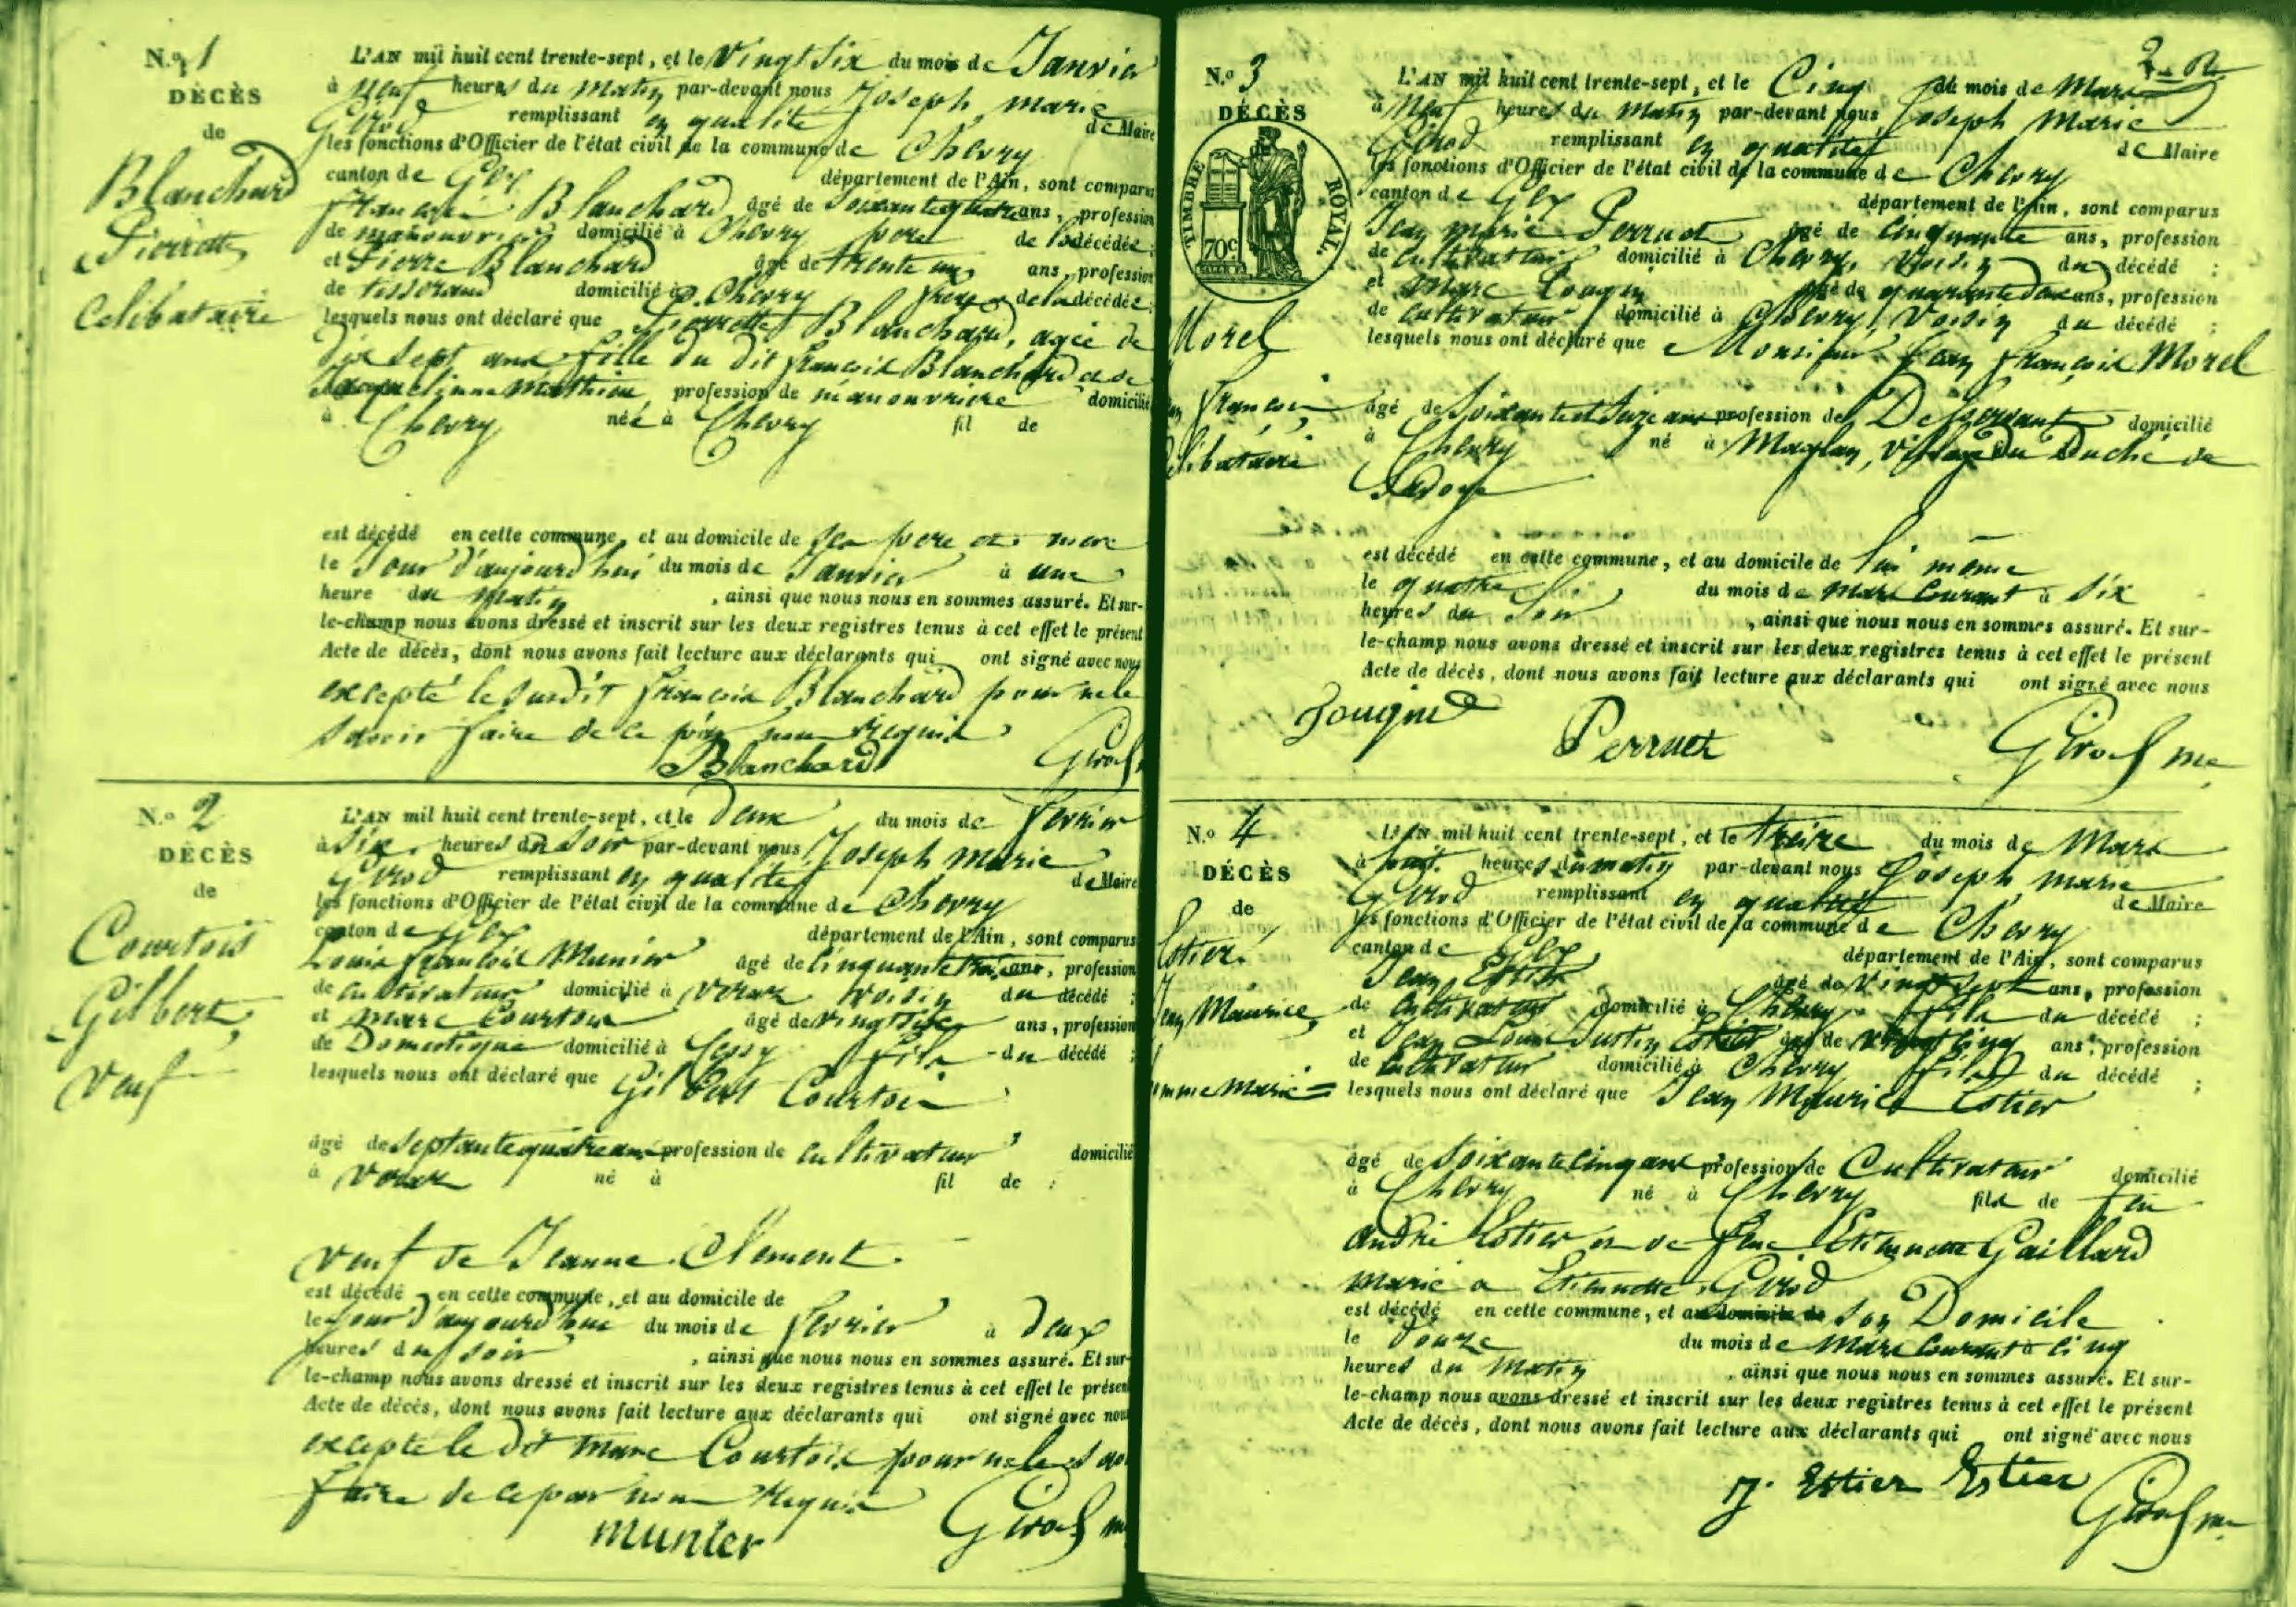 N.º 1
DÉCÈS
de
Blanchard
Pierrette
Celibataire
L'AN mil huit cent trente-sept, et le Vingt Six du mois de Janvier
à neuf heures du matin par-devant nous Joseph marie
Girod remplissant en qualité de Maire
les fonctions d'Officier de l'état civil de la commune de Chevry
canton de Gex département de l'Ain, sont comparus
françois Blanchard âgé de Soixante quatre ans, profession
de manouvrier domicilié à Chevry père de la décédée ;
et Pierre Blanchard âgé de trente un ans, profession
de tisserand domicilié à Chevry frère de la décédée ;
lesquels nous ont déclaré que Pierrette Blanchard, agée de
dix sept ans fille du dit françois Blanchard et de
Jacquelinne Mathieu, profession de manouvriere domicilié
à Chevry née à Chevry fil de
est décédé en cette commune, et au domicile de ses père et mère
le Jour d'aujourd'hui du mois de Janvier à une
heure du matin , ainsi que nous nous en sommes assuré. Et sur-
le-champ nous avons dressé et inscrit sur les deux registres tenus à cet effet le présent
Acte de décès, dont nous avons fait lecture aux déclarants qui ont signé avec nous
excepté le susdit françois Blanchard pour ne le
savoir faire de ce par nous requis
Blanchard Girod
N.º 2
DÉCÈS
de
Courtois
Gilbert
Veuf
L'AN mil huit cent trente-sept, et le deux du mois de fevrier
à Six heures du Soir par-devant nous Joseph marie
Girod remplissant en qualité de Maire
les fonctions d'Officier de l'état civil de la commune de Chevry
canton de Gex département de l'Ain, sont comparus
Louis françois Munier âgé de Cinquante trois ans, profession
de cultivateur domicilié à Veraz voisin du décédé ;
et Marc Courtois âgé de vingt six ans, profession
de Domestique domicilié à Cessy fils du décédé ;
lesquels nous ont déclaré que Gilbert Courtois
âgé de Septante quatre ans profession de cultivateur domicilié
à Veraz né à fil de :
veuf de Jeanne Clement
est décédé en cette commune, et au domicile de
le Jour d'aujourd'hui du mois de fevrier à deux
heures du soir , ainsi que nous nous en sommes assuré. Et sur-
le-champ nous avons dressé et inscrit sur les deux registres tenus à cet effet le présent
Acte de décès, dont nous avons fait lecture aux déclarants qui ont signé avec nous
excepté le dit Marc Courtois pour ne le
faire de ce par nous requis
munier Girod
N.º 3
DÉCÈS
TIMBRE ROYAL
70c
Morel
françois
Célibataire
L'AN mil huit cent trente-sept, et le Cinq du mois de Mars
à Neuf heures du Matin par-devant nous Joseph Marie
Girod remplissant en qualité de Maire
les fonctions d'Officier de l'état civil de la commune de Chevry
canton de Gex département de l'Ain, sont comparus
Jean marie Perruet âgé de Cinquante ans, profession
de Cultivateur domicilié à Chevry, Voisin du décédé ;
et Marc âgé de quarante deux ans, profession
de cultivateur domicilié à Chevry, Voisin du décédé ;
lesquels nous ont déclaré que Monsieur Jean françois Morel
âgé de Soixante et Seize ans profession de Desservant domicilié
à Chevry né à Maglan, Village du Duché de
Savoye
est décédé en cette commune, et au domicile de lui même
le quatre du mois de mars Courant à Six
heures du Soir , ainsi que nous nous en sommes assuré. Et sur-
le-champ nous avons dressé et inscrit sur les deux registres tenus à cet effet le présent
Acte de décès, dont nous avons fait lecture aux déclarants qui ont signé avec nous
Perruet Girod me
N.º 4
DÉCÈS
de
Estier
Jean Maurice
homme Marié
L'AN mil huit cent trente-sept, et le treize du mois de Mars
à huit heures du matin par-devant nous Joseph Marie
Girod remplissant en qualité de Maire
les fonctions d'Officier de l'état civil de la commune de Chevry
canton de Gex département de l'Ain, sont comparus
Jean Estier âgé de Vingt sept ans, profession
de Cultivateur domicilié à Chevry fils du décédé ;
et Jean Louis Justin Estier âgé de vingt cinq ans, profession
de Cultivateur domicilié à Chevry fils du décédé ;
lesquels nous ont déclaré que Jean Maurice Estier
âgé de Soixante Cinq ans profession de Cultivateur domicilié
à Chevry né à Chevry fils de feu
André Estier et de feue Etiennette Gaillard
marié a Etiennette Girod
est décédé en cette commune, et au domicile de Son Domicile
le Douze du mois de Mars Courant à Cinq
heures du Matin , ainsi que nous nous en sommes assuré. Et sur-
le-champ nous avons dressé et inscrit sur les deux registres tenus à cet effet le présent
Acte de décès, dont nous avons fait lecture aux déclarants qui ont signé avec nous
J. Estier Estier Girod me